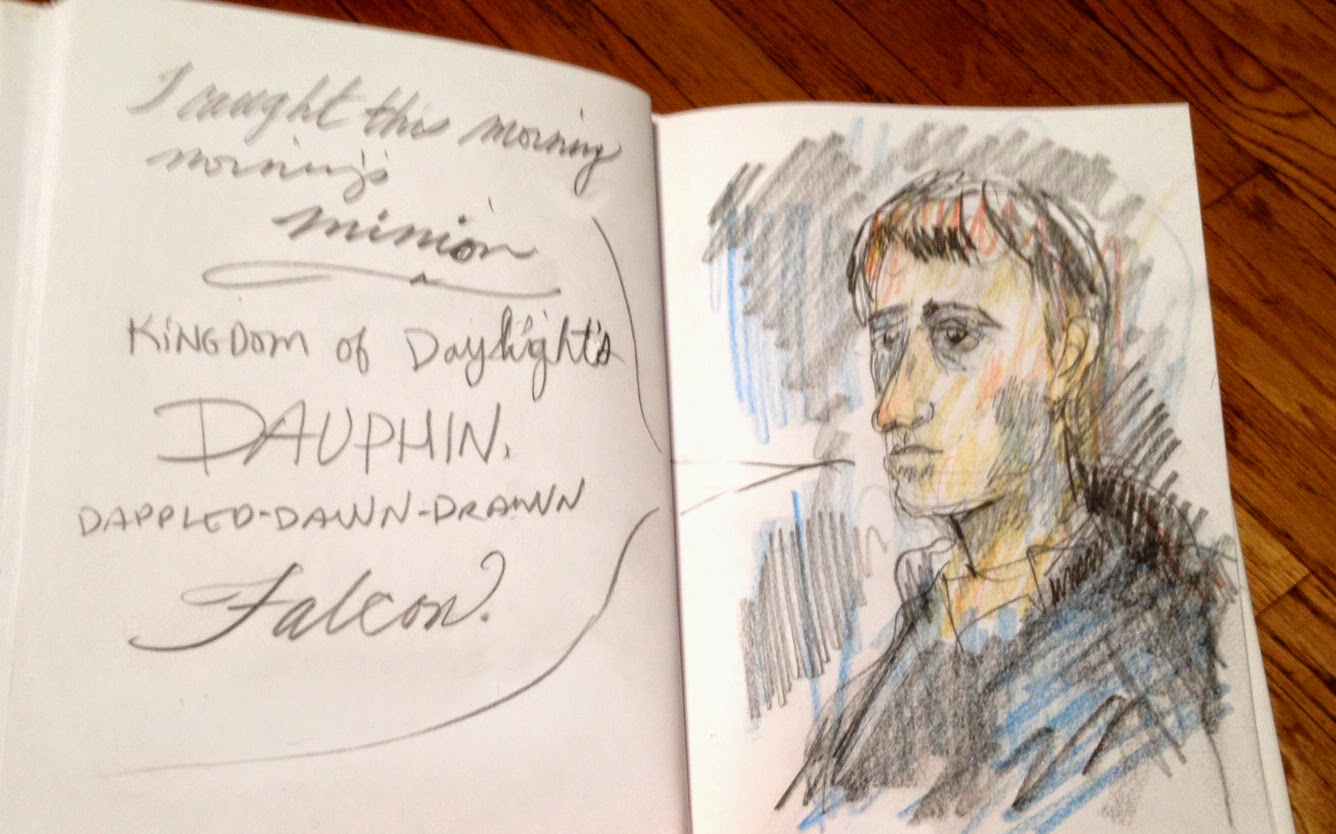 I caught this morning
morning's
minion
KINGDOM of Daylight's
DAUPHIN,
DAPPLED-DAWN-DRAWN
Falcon?